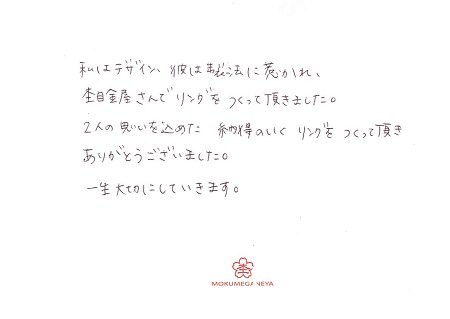 私はデザイン、彼は製法に惹かれ、
杢目金屋さんでリングをつくって頂きました。
2人の思いを込めた 納得のいくリングをつくって頂き
ありがとうございました。
一生大切にしていきます。
杢
MOKUMEGANEYA